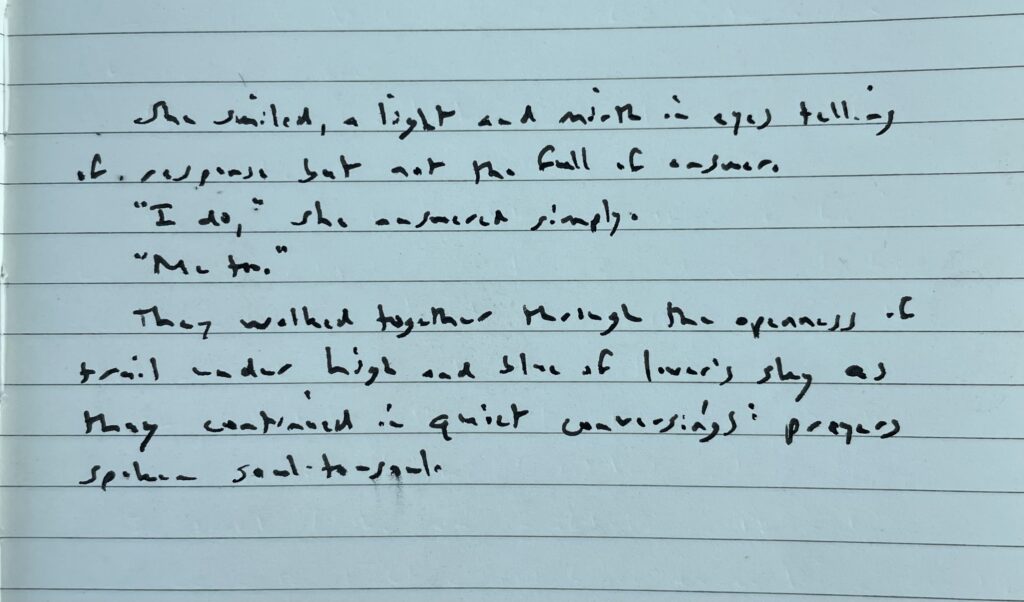 She smiled, a light and mirth in eyes telling
of response but not the full of answer.
"I do," she answered simply.
"Me too."
They walked together through the openness of
trail under high and blue of lover's sky as
they continued in quiet conversings: prayers
spoken soul-to-soul.